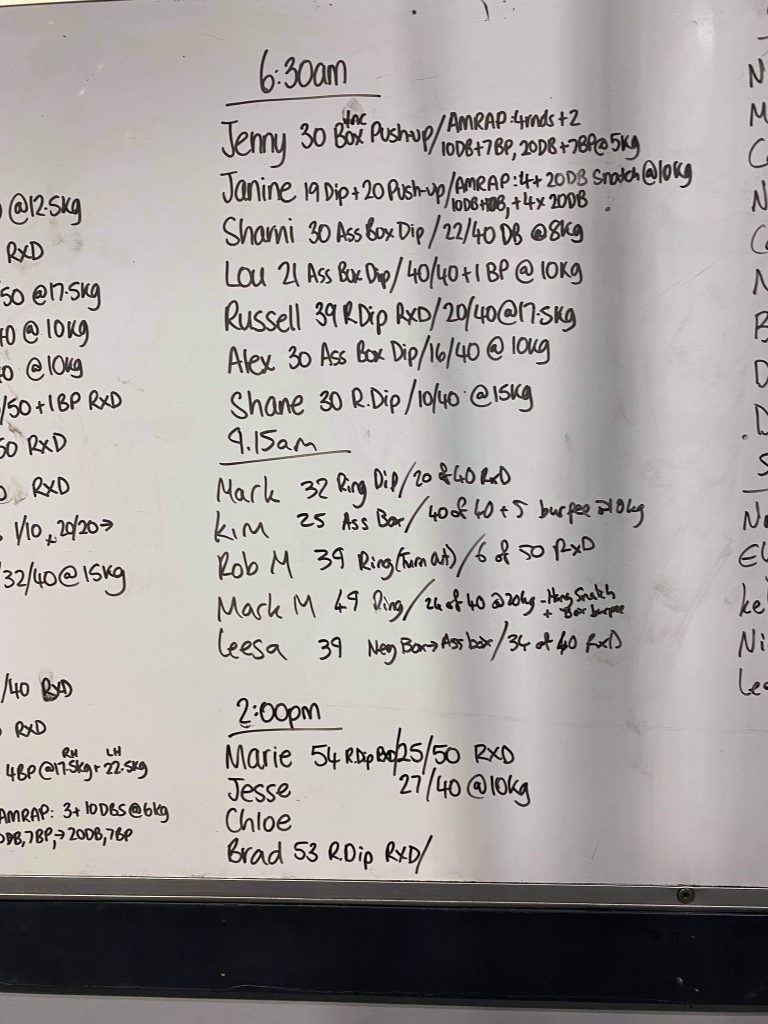 6:30am
Jenny 30 Inc Box Push-up/AMRAP:4rnds+2
10DB+7BP, 20DB+7BP@5kg
Janine 19 Dip+20 Push-up/AMRAP:4+20DB Snatch@10kg
+4x 20DB
Shami 30 Ass Box Dip/22/40 DB @8kg
Lou 21 Ass Box Dip/40/40+1 BP @ 10kg
Russell 39 R.Dip RXD/20/40@17.5kg
Alex 30 Ass Box Dip/16/40 @ 10kg
Shane 30 R.Dip/10/40 @15kg
9.15am
Mark 32 Ring Dip/20 of 40 RxD
Kim 25 Ass Box/40 of 40 + 5 burpee
Rob M 39 Ring (Turn out)/6 of 50 RxD
Mark M 49 Ring/24 of 40 @20kg - Hang Snatch
+ Bar burpee
Leesa 39 Neg Box→Ass box/34 of 40 RxD
2:00pm
Marie 54 R.Dip /25/50 RXD
Jesse 27/40 @10kg
Chloe
Brad 53 R.Dip RXD/
@12.5kg
RXD
50 @17.5kg
@ 10kg
@ 10kg
/50+1BP RXD
50 RXD
RXD
1/10 x 20/20→
32/40@15kg
/40 RXD
RXD
4BP@17.5kg RH+22.5kg LH
AMRAP: 3+10DBS@6kg
DB,7BP,→20DB,7BP
N
M
N
N
B
D
D
S
Ke
Ni